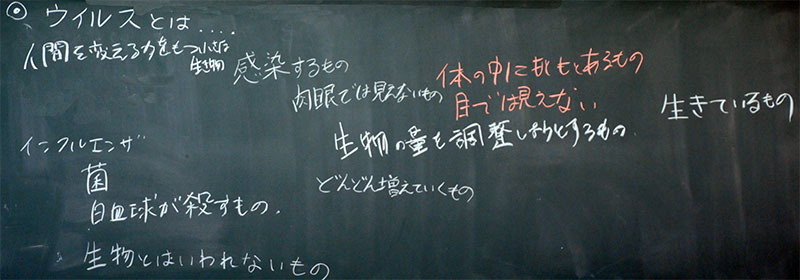 ◎ ウイルスとは....
人間を変える力をもつ
生き物
感染するもの
肉眼では見えないもの
体の中にもともとあるもの
目では見えない
生きているもの
生物の量を調整しようとするもの.
インフルエンザ
菌
白血球が殺すもの.
どんどん増えていくもの
生物とはいわれないもの